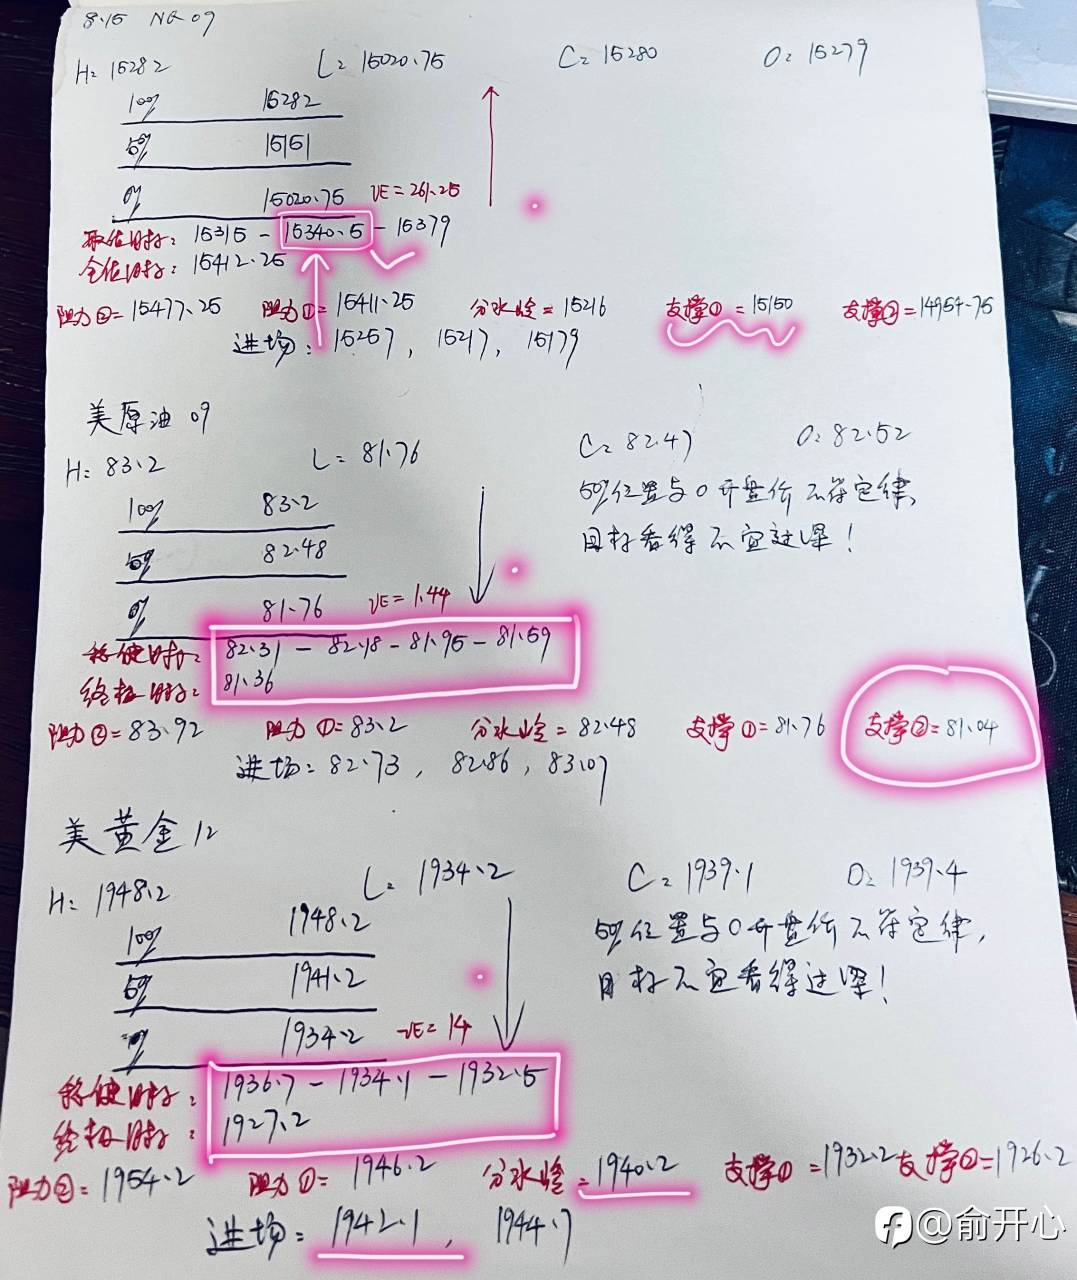 8.15 NQ 09
H=15282 L=15020.75 C=15280 O=15279
100% 15282
50% 15151
0% 15020.75 VE=261.25
目标: 15315-15340.5-15379
目标: 15412.25
阻力②=15477.25 阻力①=15411.25 分水岭=15216 支撑①=15150 支撑②=14954.75
进场: 15257, 15217, 15179
美原油 09
H=83.2 L=81.76 C=82.47 O=82.52
50%位置与O开盘价不符定律,
目标看得不宜过深!
100% 83.2
50% 82.48
0% 81.76 VE=1.44
稳健目标: 82.31-82.18-81.95-81.59
终极目标: 81.36
阻力②=83.92 阻力①=83.2 分水岭=82.48 支撑①=81.76 支撑②=81.04
进场: 82.73, 82.86, 83.07
美黄金12
H=1948.2 L=1934.2 C=1939.1 O=1939.4
50%位置与O开盘价不符定律,
目标不宜看得过深!
100% 1948.2
50% 1941.2
0% 1934.2 VE=14
稳健目标: 1936.7-1934.1-1932.5
终极目标: 1927.2
阻力②=1954.2 阻力①=1946.2 分水岭=1940.2 支撑①=1932.2 支撑②=1926.2
进场: 1942.1, 1944.7
@俞开心